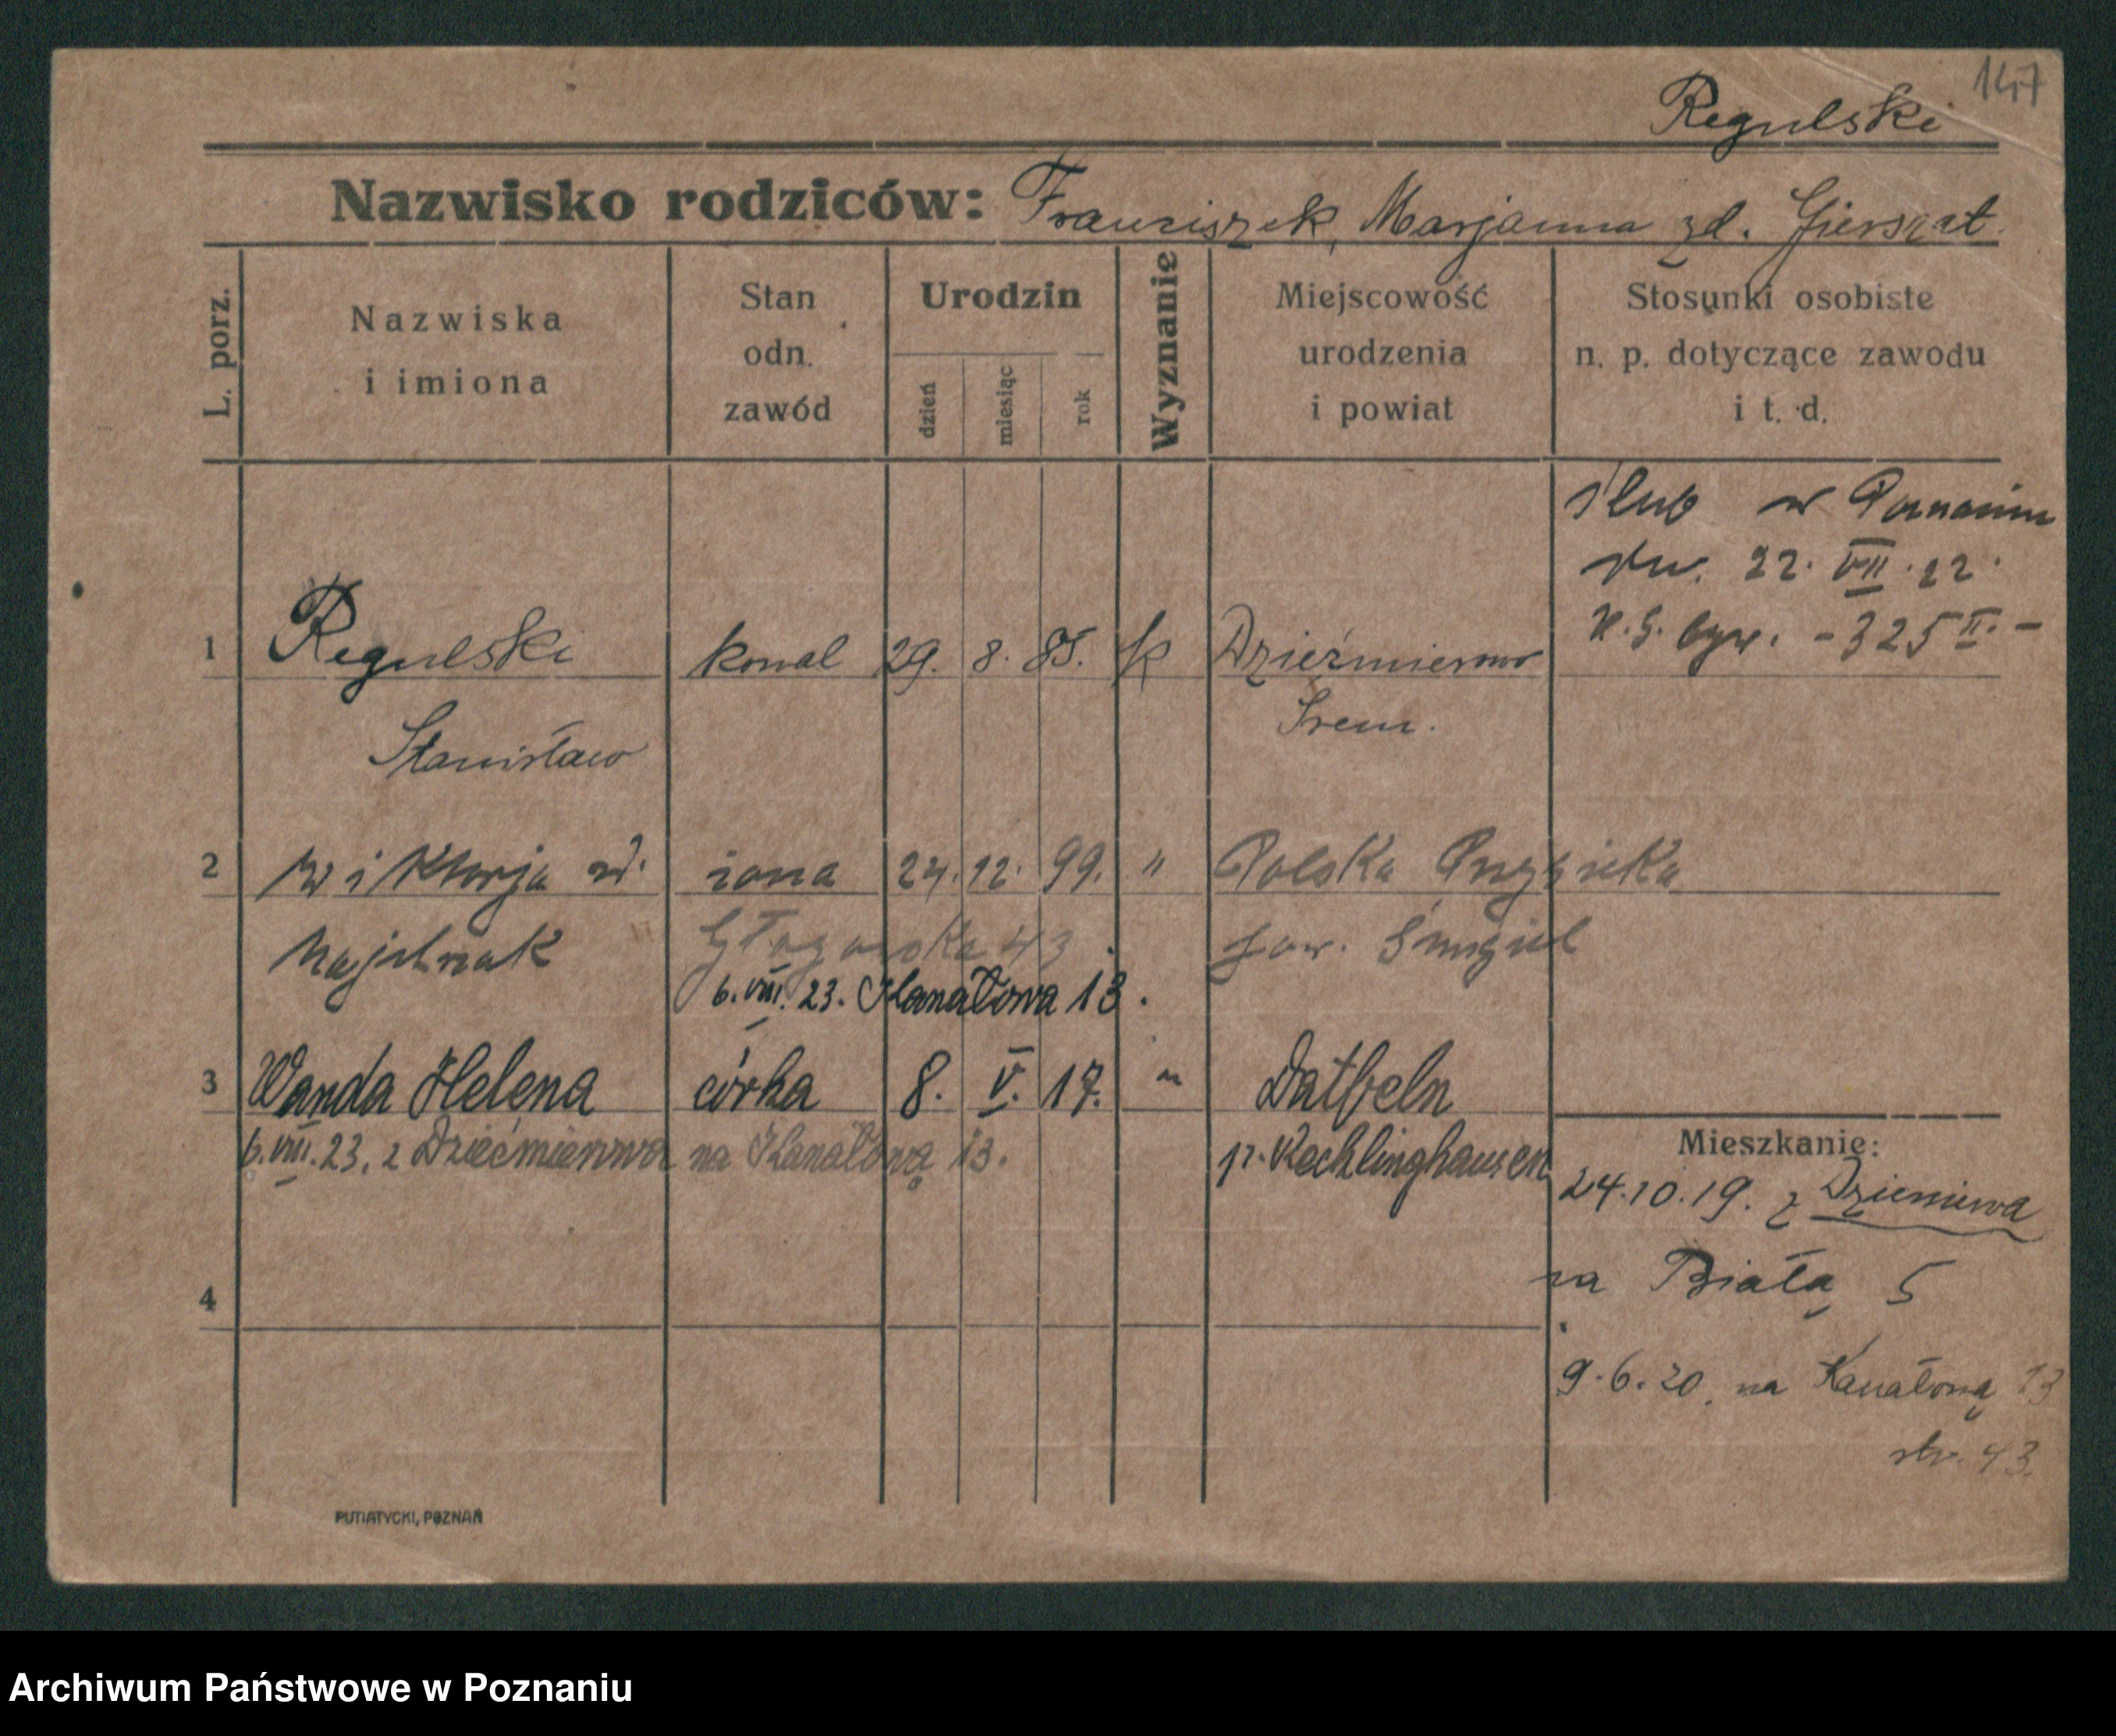 147
Regulski
Nazwisko rodziców: Franciszek, Marjanna zd. Gierszat
L. porz.
Nazwiska
i imiona
Stan
odn.
zawód
Urodzin
dzień
miesiąc
rok
Wyznanie
Miejscowość
urodzenia
i powiat
Stosunki osobiste
n. p. dotyczące zawodu
i t. d.
ślub w Poznaniu
dn. 22. VII. 22.
- 325 II. -
1 Regulski kowal 29. 8. 85. k Dzieźmierowo
Stanisław Śrem.
2 Wiktorja żona 24. 12. 99. " Polska
Głogowska 43 pow. Śmigiel
6. VIII. 23. Kanałowa 13.
3 Wanda Helena córka 8. V. 17. " Datteln
6. VIII. 23. z Dziećmierowa na Kanałową 13. pr. Recklinghausen
Mieszkanie:
24.10.19. z
na Białą 5
4
9.6.20. na Kanałową 13
str. 43.
PUTIATYCKI, POZNAŃ
Archiwum Państwowe w Poznaniu